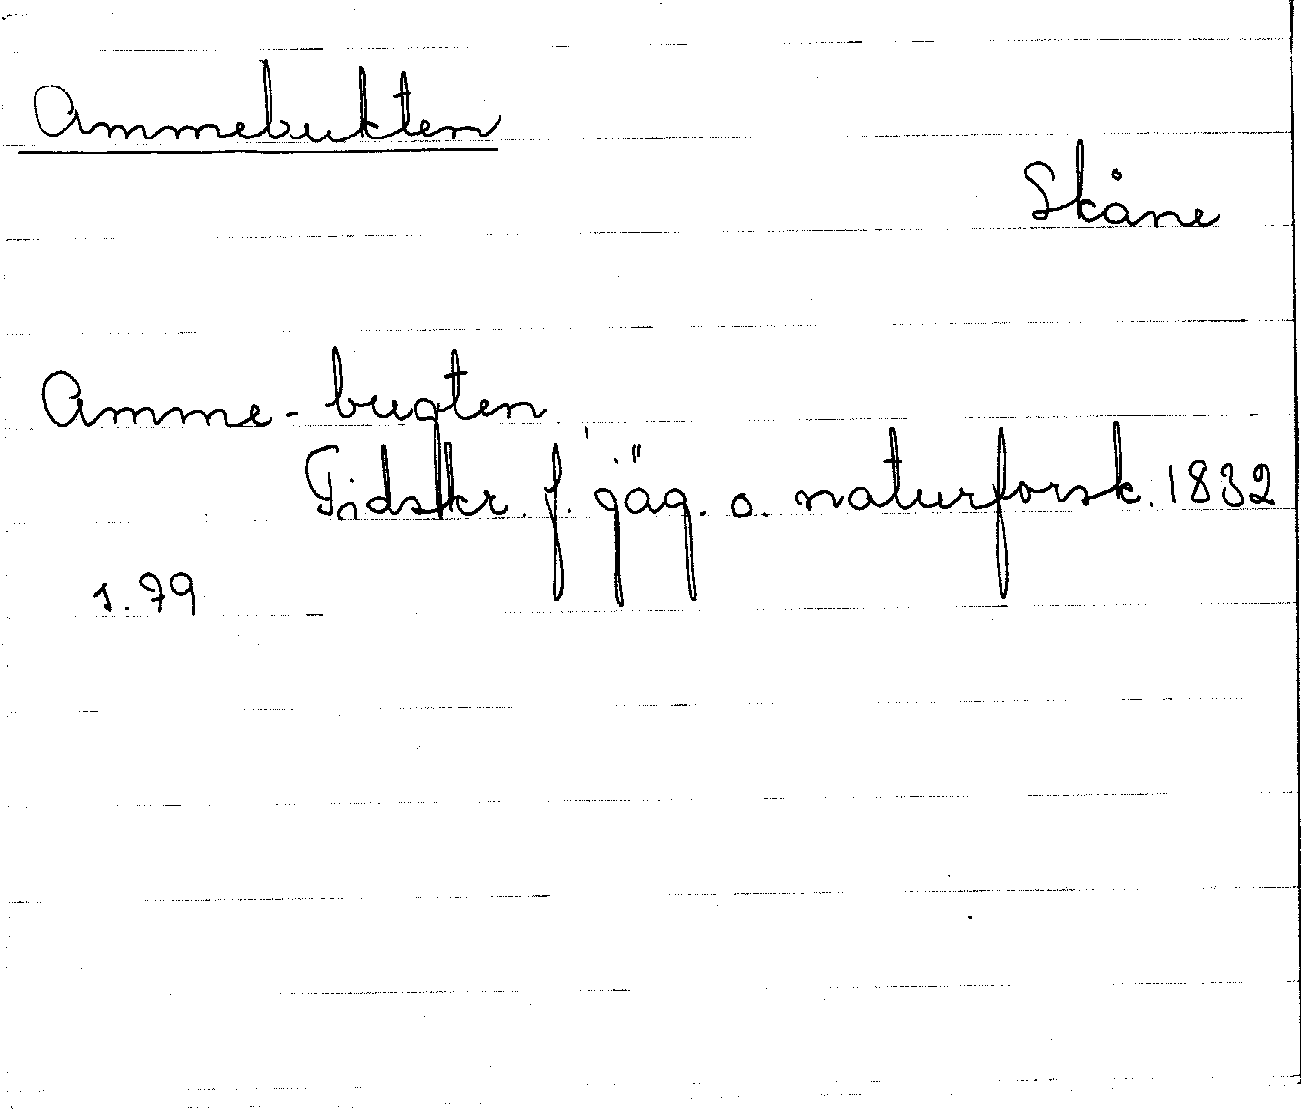 Ammebukten
Skåne
Amme-bugten
Tidskr. f. jäg. o. naturforsk. 1832
s. 79